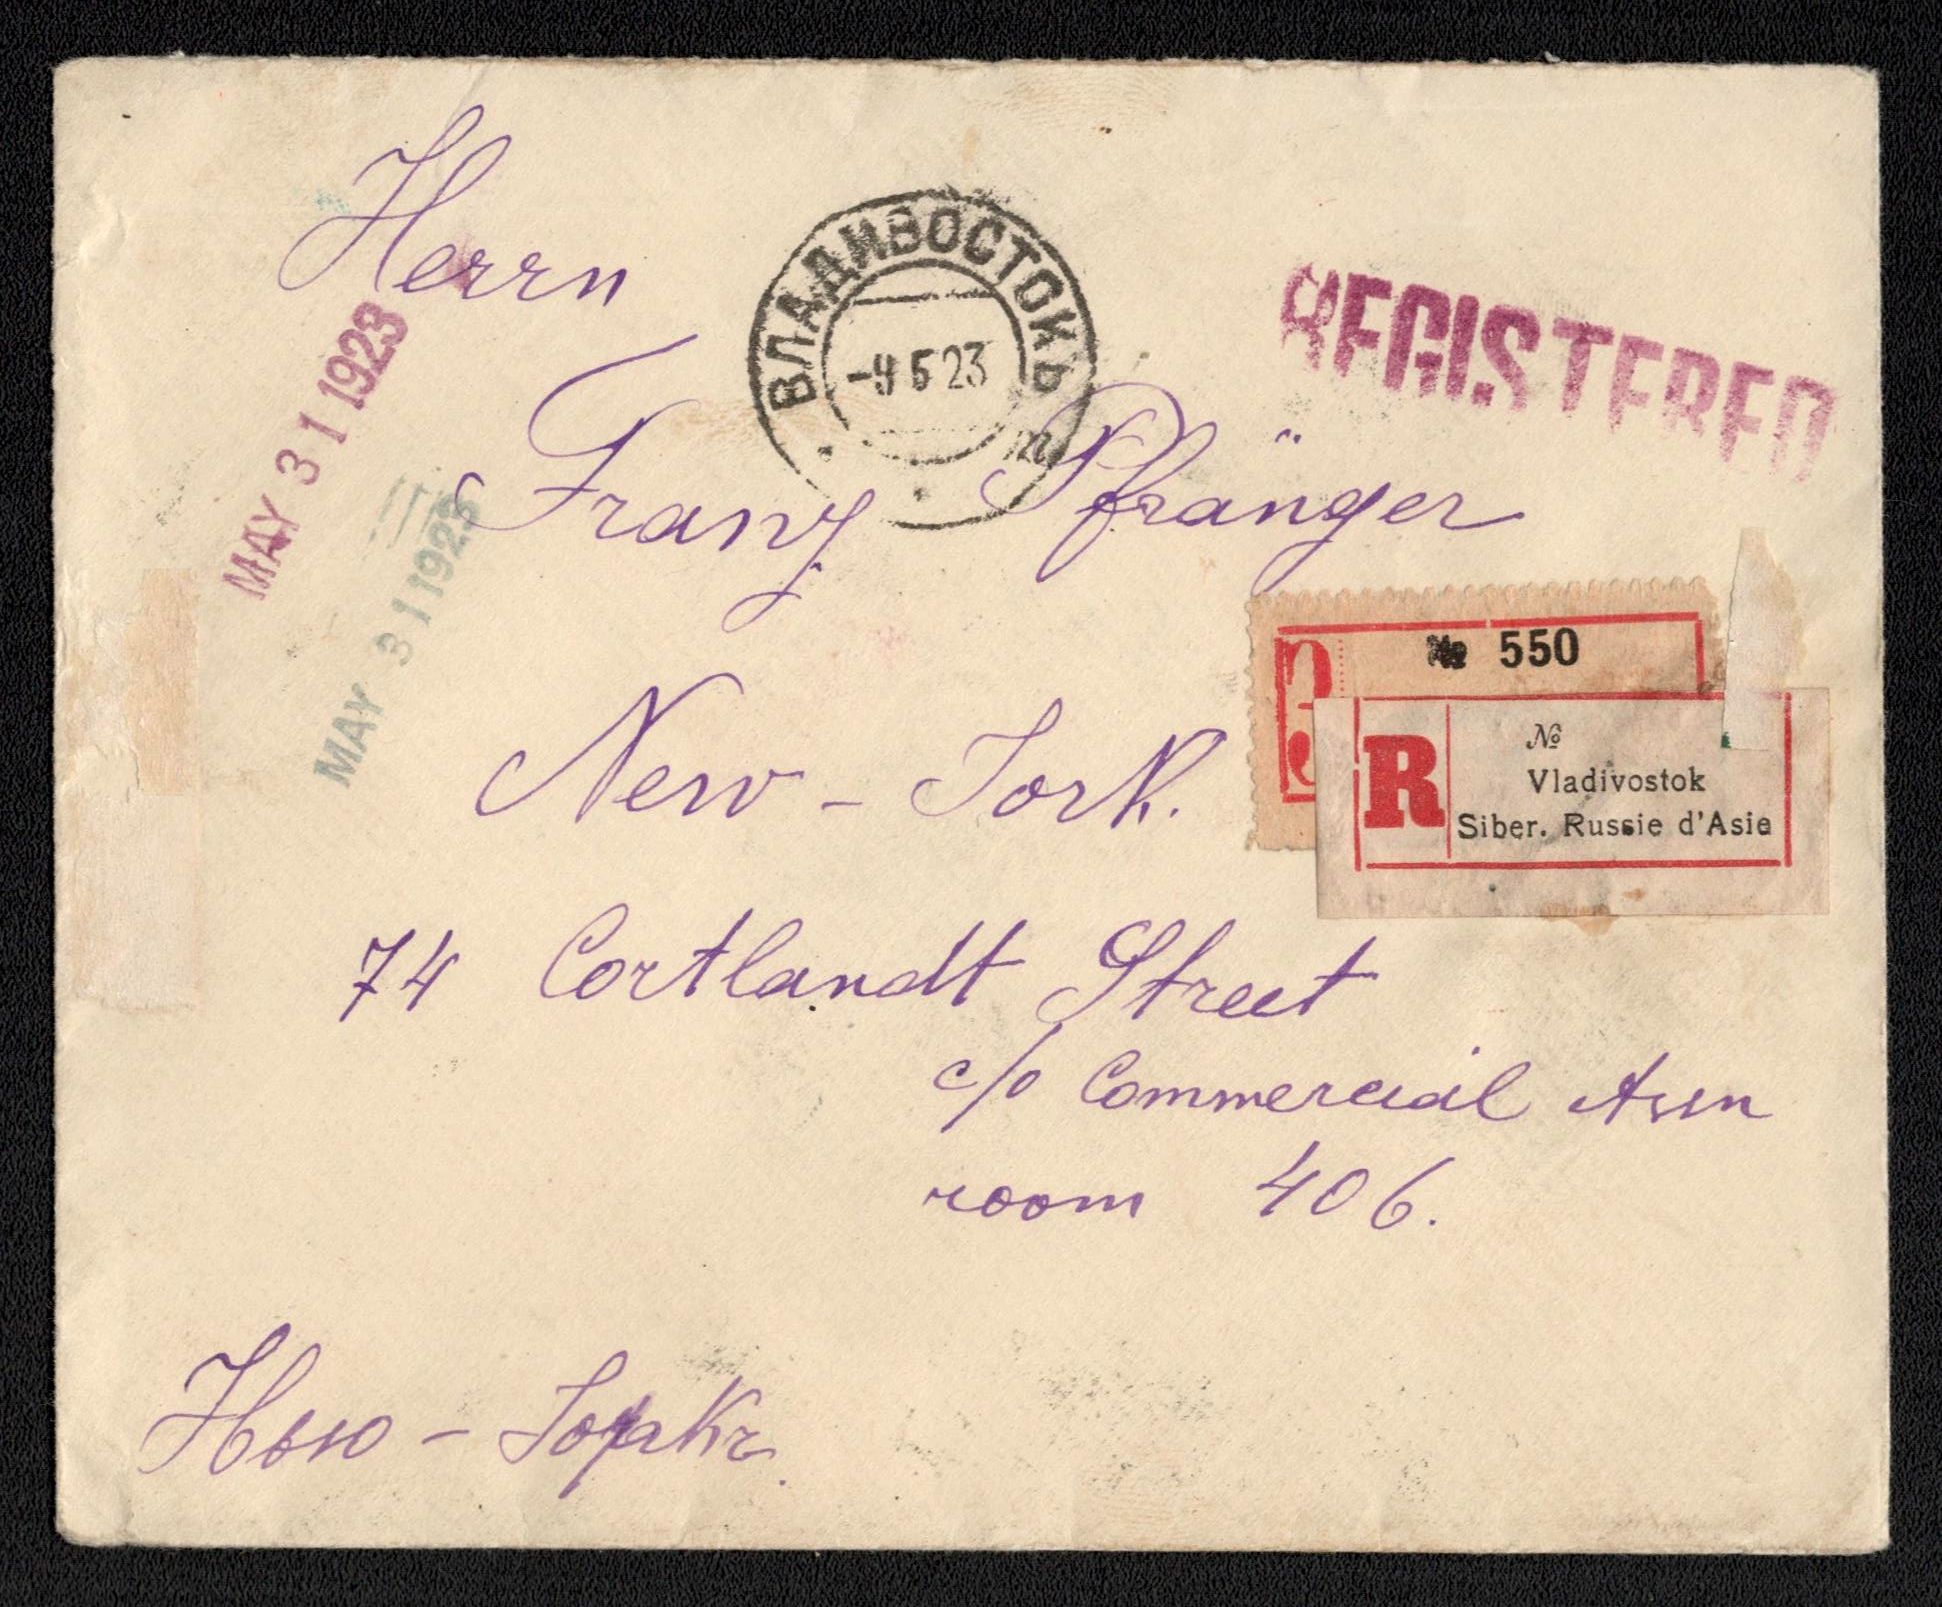 Herrn
ВЛАДИВОСТОКЪ
-9 5 23
REGISTERED
MAY 31 1923
MAY 31 1923
Franz Pfränger
№ 550
New-Jork.
R
№
Vladivostok
Siber. Russie d'Asie
74 Cortlandt Street
c/o Commercial Assn
room 406.
Нью-Іоркъ